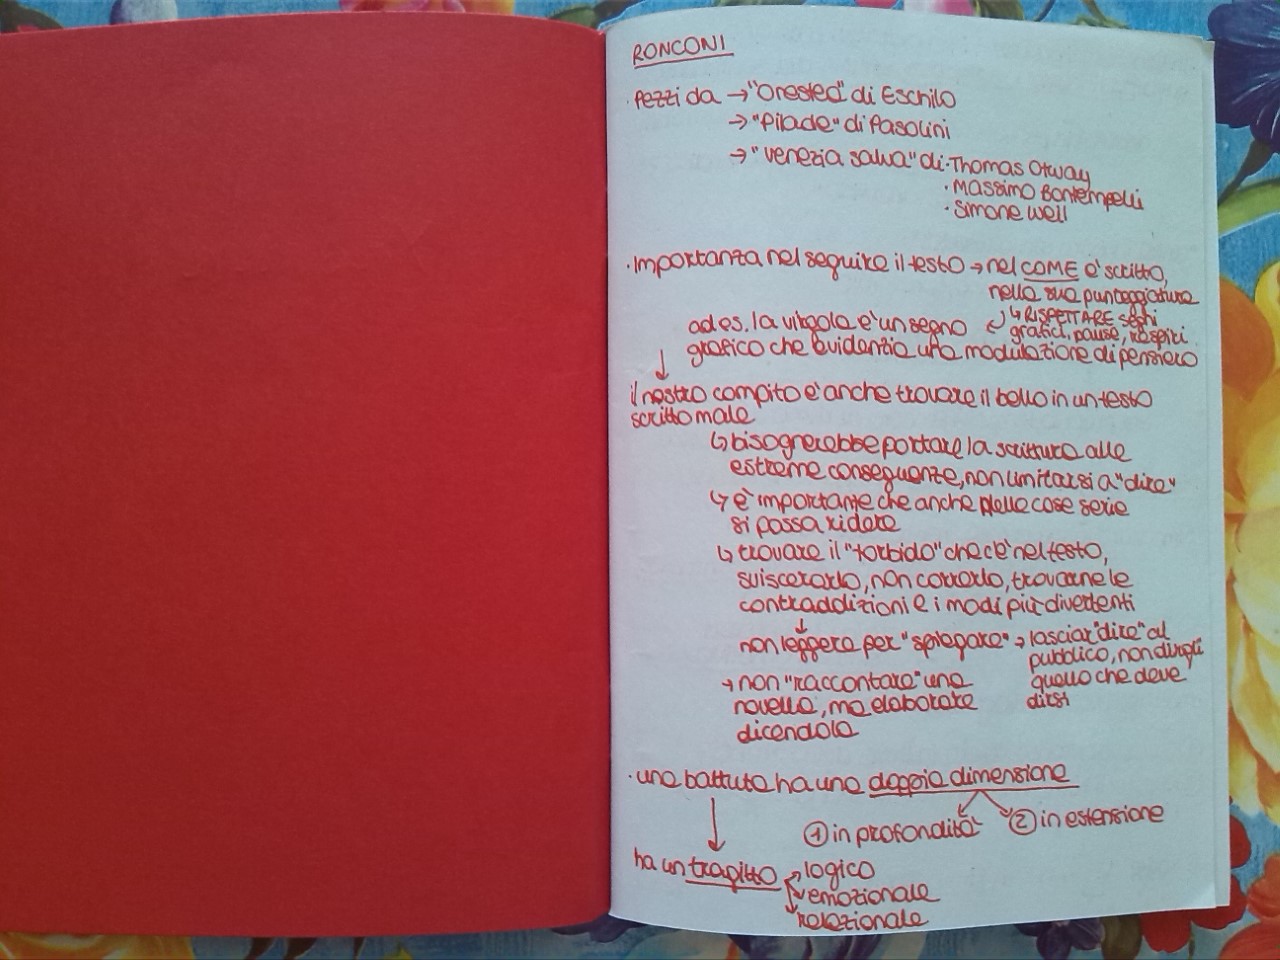 RONCONI
· Pezzi da → "Orestea" di Eschilo
→ "Pilade" di Pasolini
→ "Venezia salva" di · Thomas Otway
· Massimo Bontempelli
· Simone Weil
· Importanza nel seguire il testo → nel COME è scritto,
nella sua punteggiatura
↳ RISPETTARE segni
grafici, pause, respiri
ad es. la virgola è un segno
grafico che evidenzia una modulazione di pensiero
↓
il nostro compito è anche trovare il bello in un testo
scritto male
↳ bisognerebbe portare la scrittura alle
estreme conseguenze, non limitarsi a "dire"
↳ è importante che anche delle cose serie
si possa ridere
↳ trovare il "torbido" che c'è nel testo,
sviscerarlo, non correrlo, trovarne le
contraddizioni e i modi più divertenti
↓
non leggere per "spiegare" → lasciar "dire" al
pubblico, non dirgli
quello che deve
dirsi
→ non "raccontare" una
novella, ma elaborare
dicendola
· una battuta ha una doppia dimensione
① in profondità ② in estensione
ha un tragitto → logico
→ emozionale
→ relazionale